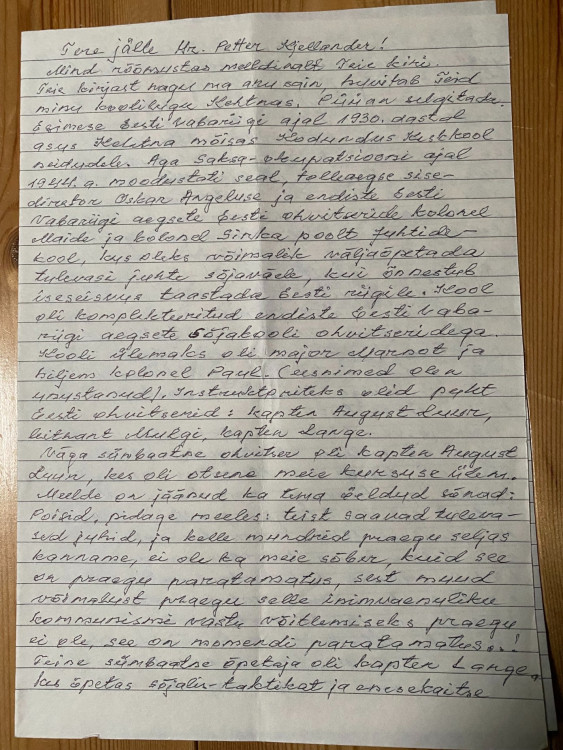 Tere jälle Hr. Petter Kjellander!
Mind rõõmustas meeldivalt Teie kiri.
Teie kirjast nagu ma aru sain huvitab Teid
minu koolikäigu Kehtnas. Püüan selgitada.
Esimese Eesti Vabariigi ajal 1930. dastal
asus Kehtna mõisas Kodundus Keskkool
neidudele. Aga Saksa-okupatsiooni ajal
1944. a. moodustati seal, tolleaegse sise-
direktor Oskar Angeluse ja endiste Eesti
Vabariigi aegsete Eesti ohvitseride kolonel
Maide ja kolonel Sinka poolt Juhtide-
kool, kus oleks võimalik väljaõpetada
tulevasi juhte sõjaväele, kui õnnestub
iseseisvus taastada Eesti riigile. Kool
oli komplekteeritud endiste Eesti Vaba-
riigi aegsete Sõjakooli ohvitseridega.
Kooli ülemaks oli major Marnot ja
hiljem kolonel Paul. (eesnimed olen
unustanud). Instruktoriteks olid puht
Eesti ohvitserid: kapten August Luur,
leitnant Mulgi, kapten Lange.
Väga sümbaatne ohvitser oli kapten August
Luur, kes oli otsene meie kursuse ülem.
Meelde on jäänud ka tema öeldud sõnad:
Poisid, pidage meeles: teist saavad tuleva-
sed juhid, ja kelle mundrid praegu seljas
kanname, ei ole ka meie sõber, kuid see
on praegu paratamatus, sest muud
võimalust praegu selle inimvaenuliku
kommunismi vastu võitlemiseks praegu
ei ole, see on momendi paratamatus..!
Teine sümbaatne õpetaja oli kapten Lange,
kes õpetas sõjalis-taktikat ja enesekaitse